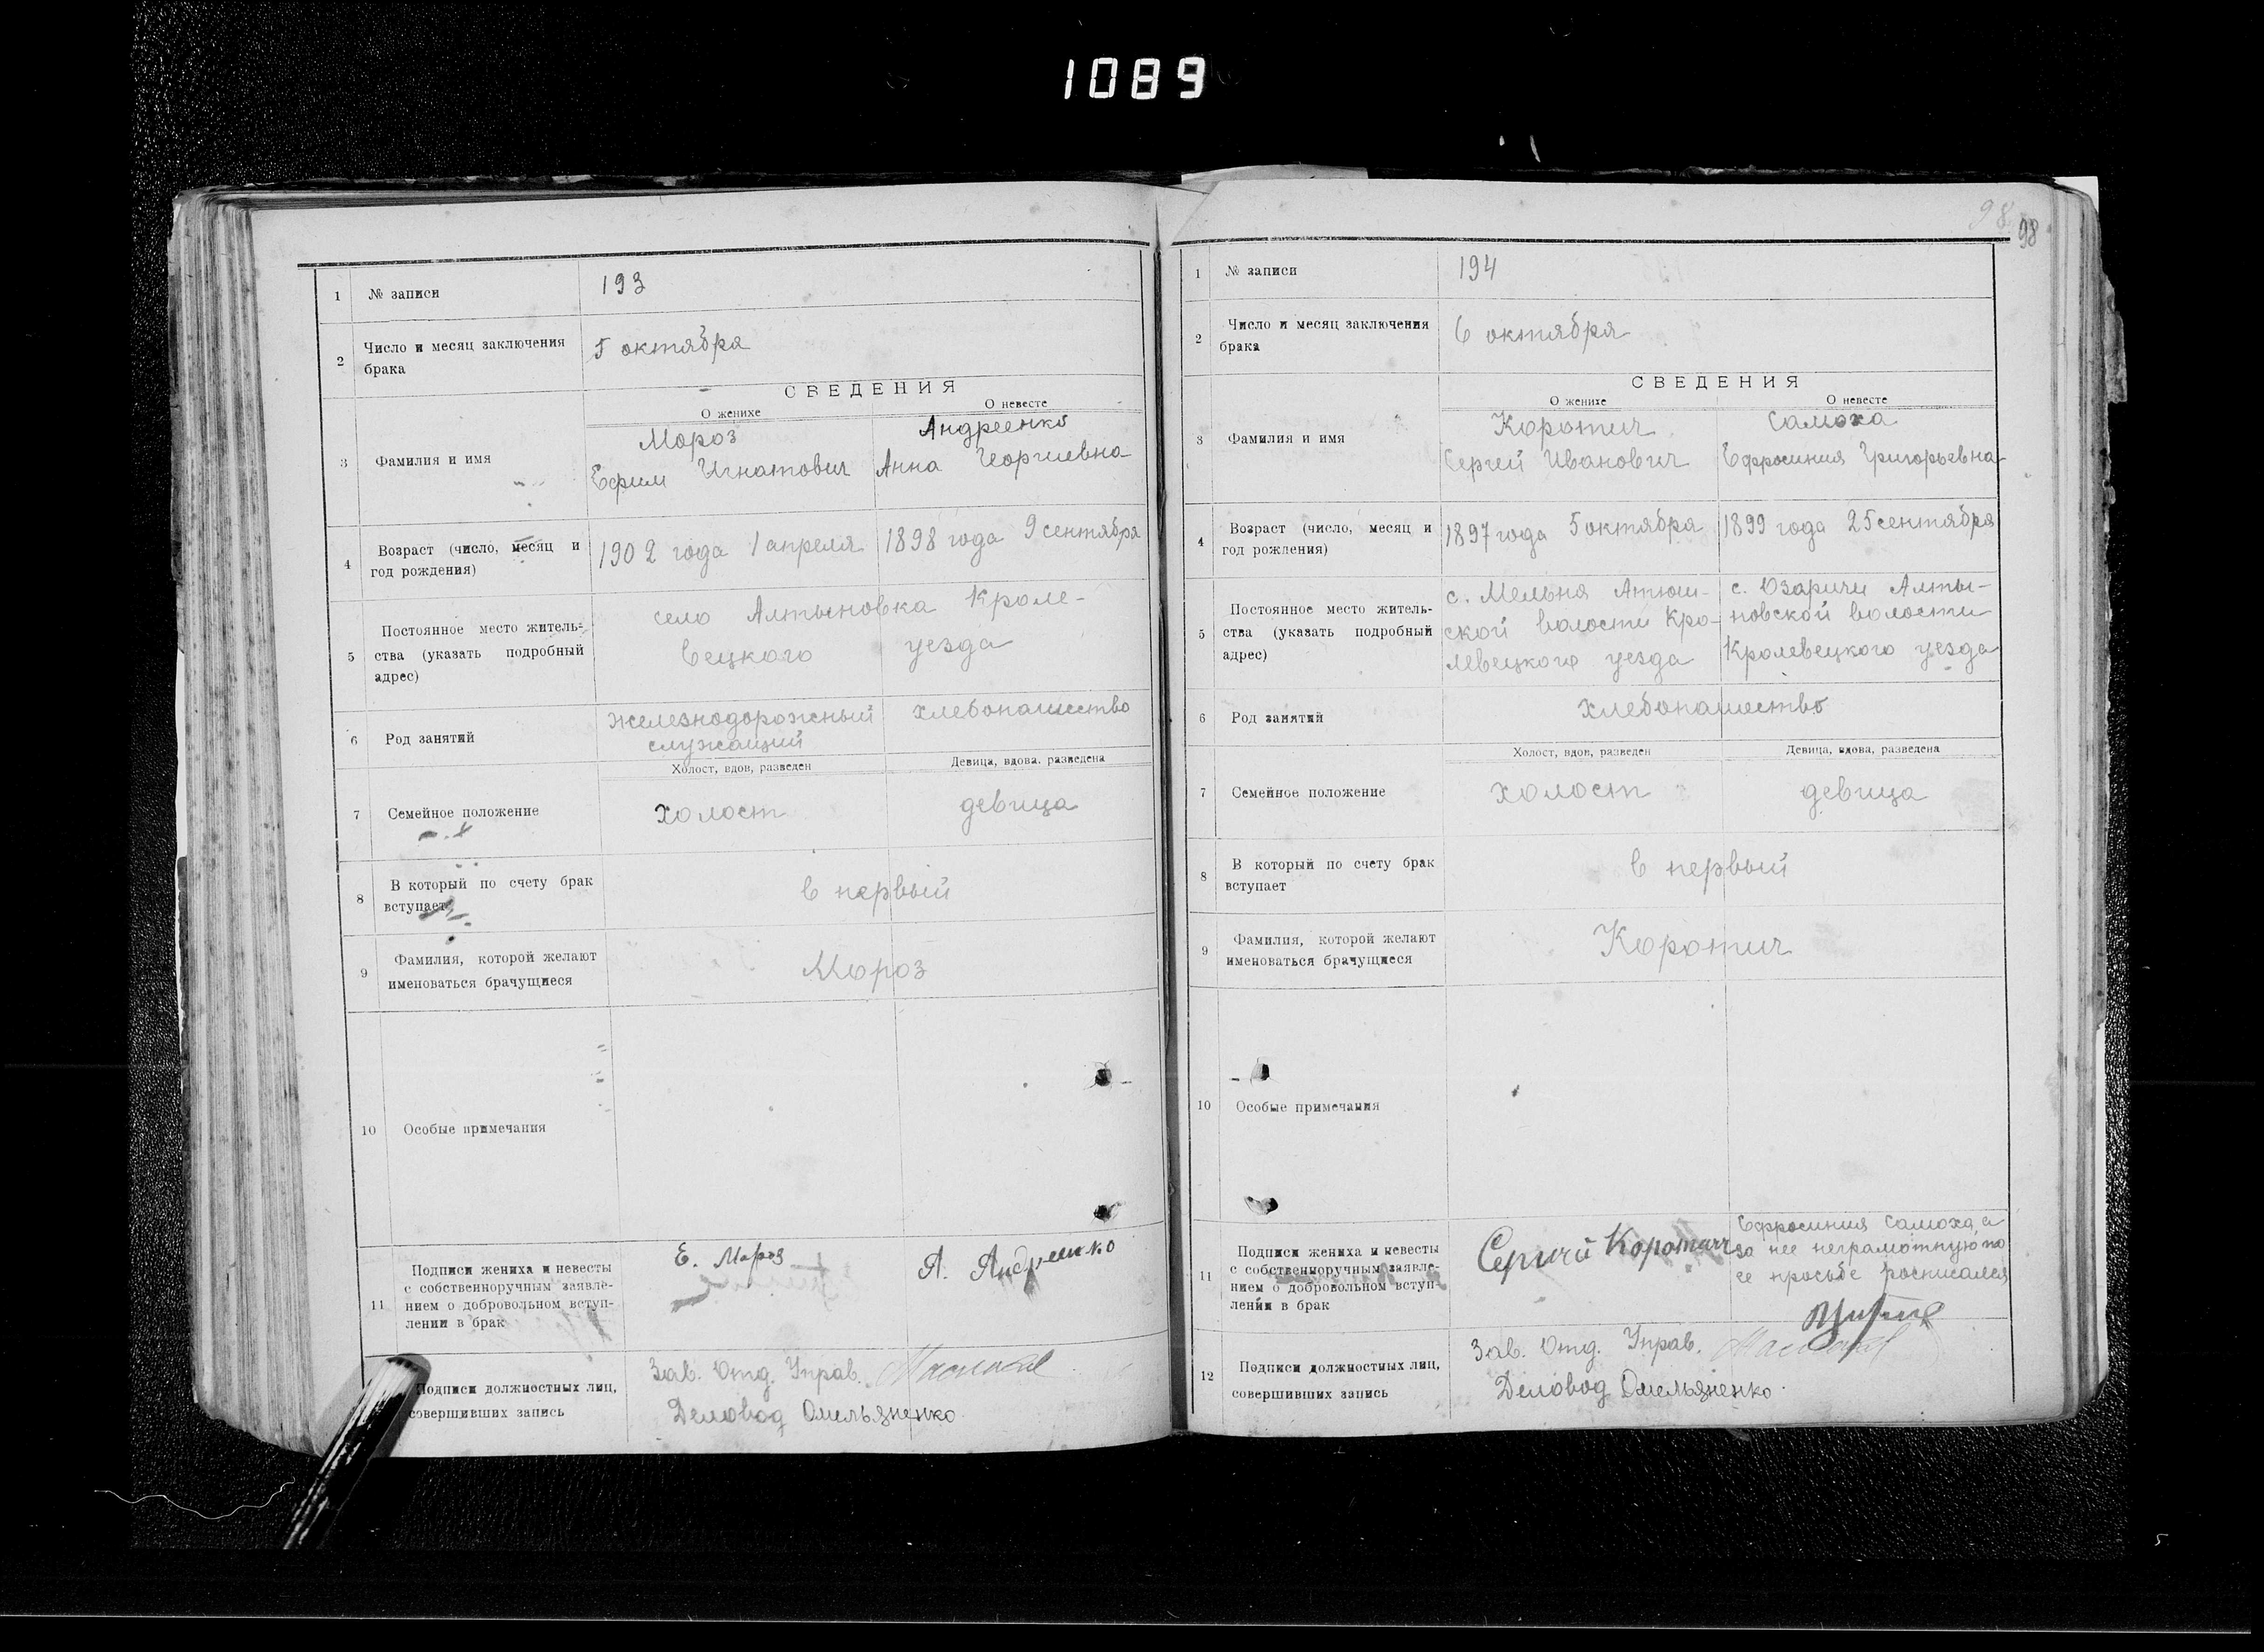 1089
1 № записи 193
2 Число и месяц заключения
брака
5 октября
СВЕДЕНИЯ
О женихе О невесте
3 Фамилия и имя
Мороз
Ефим Игнатович
Андреенко
Анна Георгиевна
4 Возраст (число, месяц и
год рождения)
1902 года 1 апреля
1898 года 9 сентября
5 Постоянное место житель-
ства (указать подробный
адрес)
село Алтыновка Кроле-
вецкого уезда
6 Род занятий
железнодорожный
служащий
хлебопашество
Холост, вдов, разведен Девица, вдова, разведена
7 Семейное положение
холост девица
8 В который по счету брак
вступает
в первый
9 Фамилия, которой желают
именоваться брачущиеся
Мороз
10 Особые примечания
11 Подписи жениха и невесты
с собственноручным заявле-
нием о добровольном вступ-
лении в брак
Е. Мороз А. Андреенко
Подписи должностных лиц,
совершивших запись
Зав. Отд. Управ.
Деловод Омельяненко
98
98
1 № записи 194
2 Число и месяц заключения
брака
6 октября
СВЕДЕНИЯ
О женихе О невесте
3 Фамилия и имя
Коротич
Сергей Иванович
Самоха
Ефросиния Григорьевна
4 Возраст (число, месяц и
год рождения)
1897 года 5 октября
1899 года 25 сентября
5 Постоянное место житель-
ства (указать подробный
адрес)
с. Мельня Атюш-
ской волости Кро-
левецкого уезда
с. Озаричи Алты-
новской волости
Кролевецкого уезда
6 Род занятий
хлебопашество
Холост, вдов, разведен Девица, вдова, разведена
7 Семейное положение
холост девица
8 В который по счету брак
вступает
в первый
9 Фамилия, которой желают
именоваться брачущиеся
Коротич
10 Особые примечания
11 Подписи жениха и невесты
с собственноручным заявле-
нием о добровольном вступ-
лении в брак
Сергий Коротич
Ефросиния Самоха, а
за нее неграмотную по
ее просьбе росписался
12 Подписи должностных лиц,
совершивших запись
Зав. Отд. Управ.
Деловод Омельяненко.